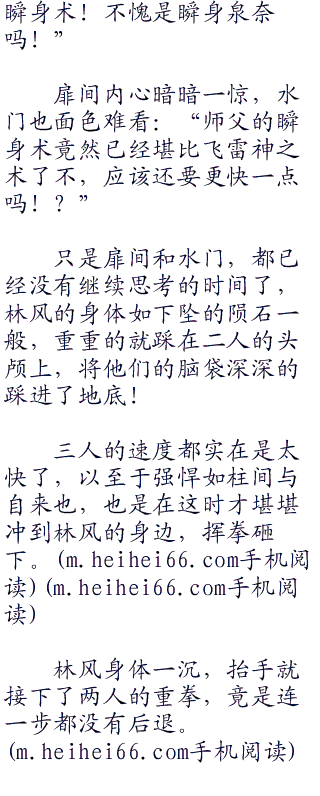 瞬身术！不愧是瞬身泉奈
吗！”
扉间内心暗暗一惊，水
门也面色难看：“师父的瞬
身术竟然已经堪比飞雷神之
术了不，应该还要更快一点
吗！？”
只是扉间和水门，都已
经没有继续思考的时间了，
林风的身体如下坠的陨石一
般，重重的就踩在二人的头
颅上，将他们的脑袋深深的
踩进了地底！
三人的速度都实在是太
快了，以至于强悍如柱间与
自来也，也是在这时才堪堪
冲到林风的身边，挥拳砸
下。(m.heihei66.com手机阅
读)(m.heihei66.com手机阅
读)
林风身体一沉，抬手就
接下了两人的重拳，竟是连
一步都没有后退。
(m.heihei66.com手机阅读)